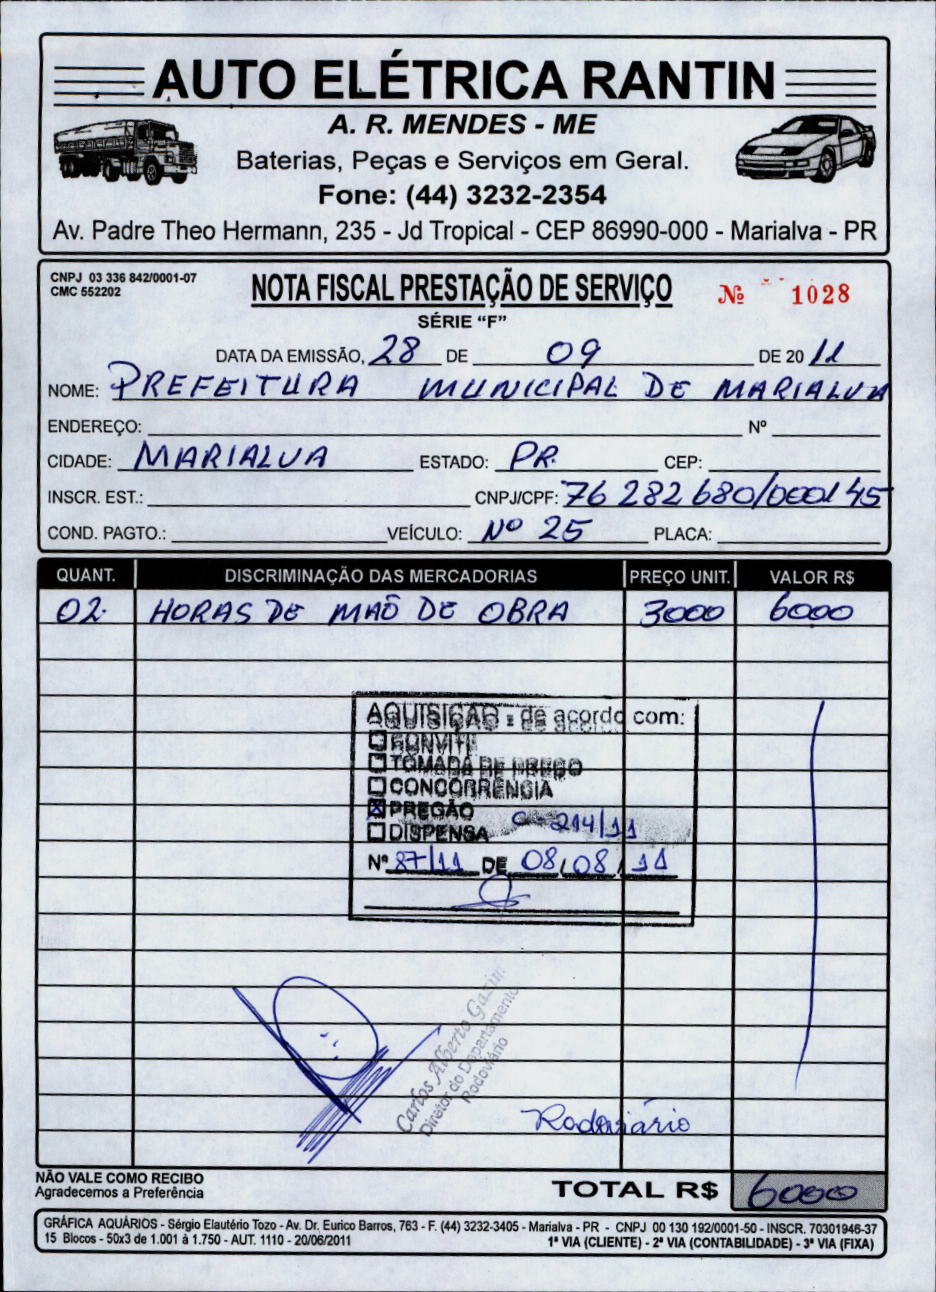 AUTO ELÉTRICA RANTIN
A. R. MENDES - ME
Baterias, Peças e Serviços em Geral.
Fone: (44) 3232-2354
Av. Padre Theo Hermann, 235 - Jd Tropical - CEP 86990-000 - Marialva - PR
CNPJ 03 336 842/0001-07
CMC 552202
NOTA FISCAL PRESTAÇÃO DE SERVIÇO
Nº 1028
SÉRIE "F"
DATA DA EMISSÃO, 28 DE 09 DE 2011
NOME: PREFEITURA MUNICIPAL DE MARIALVA
ENDEREÇO: Nº
CIDADE: MARIALVA ESTADO: PR. CEP:
INSCR. EST.: CNPJ/CPF: 76 282 680/0001 45
COND. PAGTO.: VEÍCULO: Nº 25 PLACA:
QUANT. DISCRIMINAÇÃO DAS MERCADORIAS PREÇO UNIT. VALOR R$
02 HORAS DE MAÕ DE OBRA 3000 6000
AQUISIÇÃO : de acordo com:
CONVITE
TOMADA DE PREÇO
CONCORRÊNCIA
PREGÃO
C - 214/11
DISPENSA
Nº 87/11 DE 08/08/11
Carlos Alberto Gazim
Diretor do Departamento
Rodoviário
Rodoviário
NÃO VALE COMO RECIBO
Agradecemos a Preferência
TOTAL R$ 6000
GRÁFICA AQUÁRIOS - Sérgio Elautério Tozo - Av. Dr. Eurico Barros, 763 - F. (44) 3232-3405 - Marialva - PR - CNPJ 00 130 192/0001-50 - INSCR. 70301946-37
15 Blocos - 50x3 de 1.001 à 1.750 - AUT. 1110 - 20/06/2011 1ª VIA (CLIENTE) - 2ª VIA (CONTABILIDADE) - 3ª VIA (FIXA)